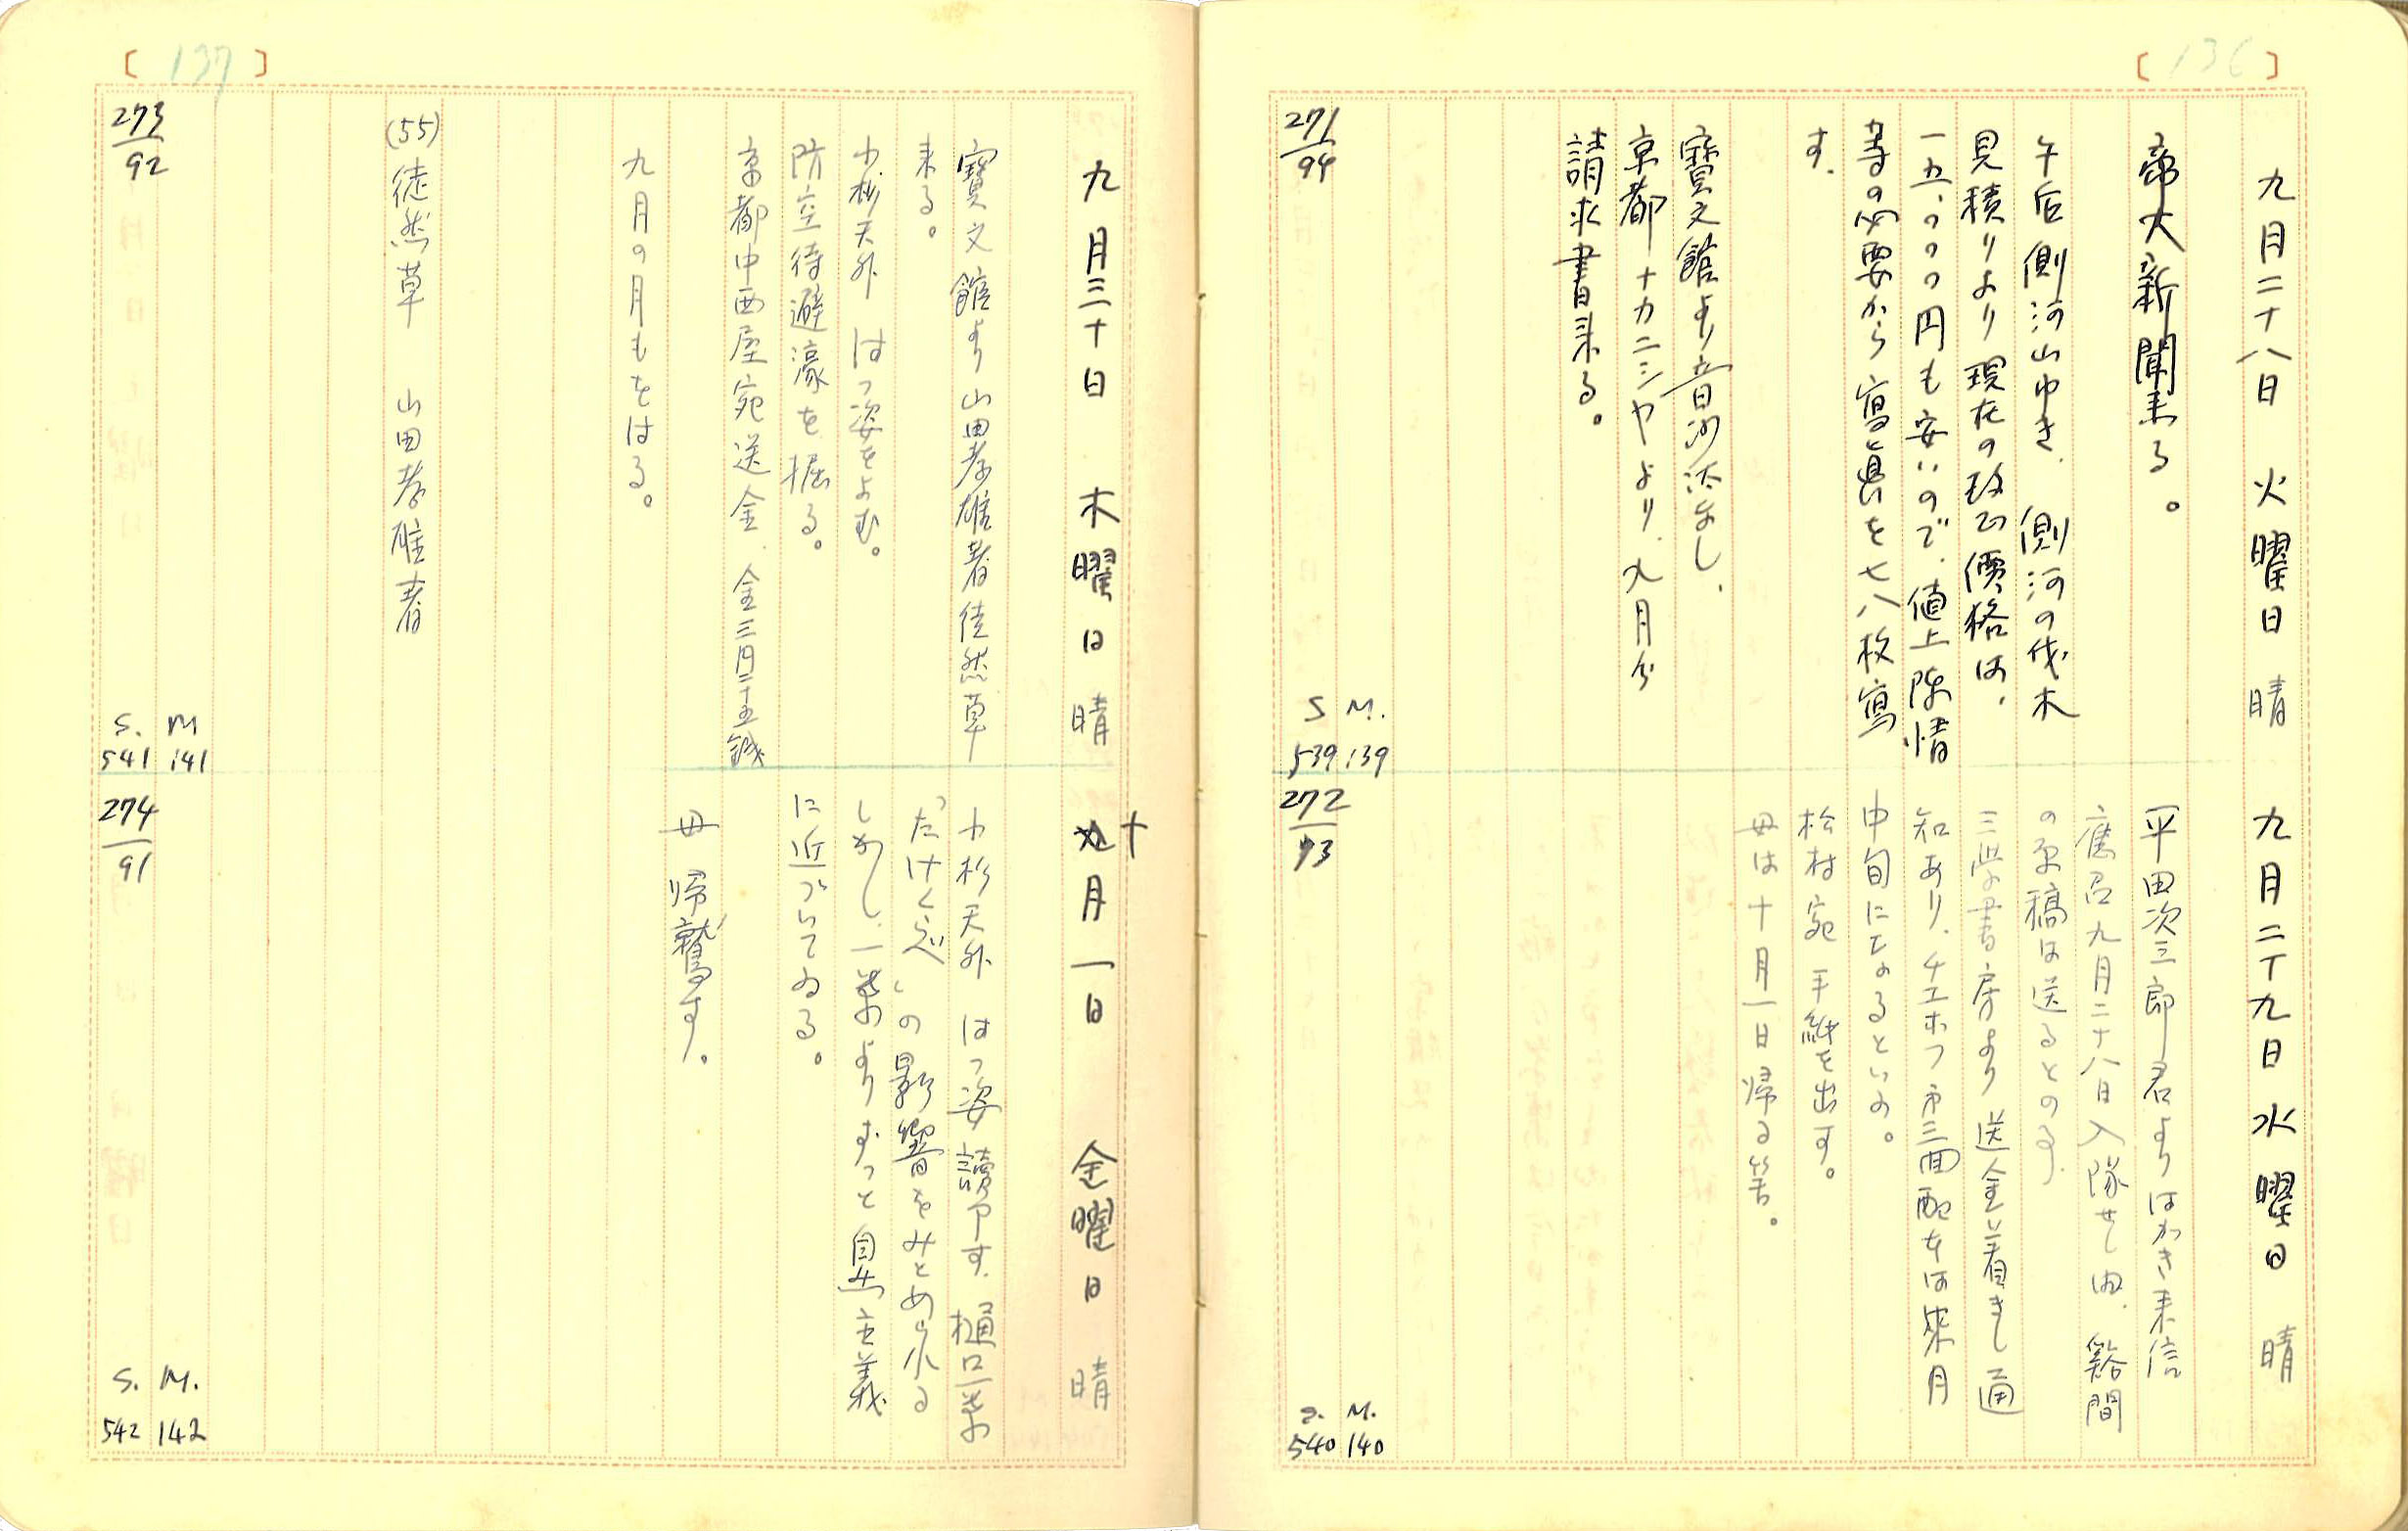 [136]
九月二十八日 火曜日 晴
帝大新聞来る。
午后側河山ゆき、側河の伐木
見積りより現在の改正價格は、
一五、〇〇〇円も安いので、値上陳情
等の必要から寫眞を七八枚寫
す。
寶文館より音沙汰なし、
京都ナカニシヤより、九月分
請求書来る。
271
94
S M.
539 139
九月二十九日 水曜日 晴
平田次三郎君よりはがき来信
應召九月二十八日入隊せし由、谿間
の原稿は送るとの事、
三學書房より送金着きし通
知あり、チエホフ第三回配本は來月
中旬になるといふ。
松村宛手紙を出す。
母は十月一日帰る筈。
272
93
S. M.
540 140
[137]
九月三十日 木曜日 晴
寶文館より山田孝雄著徒然草
来る。
小杉天外 はつ姿をよむ。
防空待避濠を掘る。
京都中西屋宛送金、金三円二十五銭
九月の月もをはる。
(55)徒然草 山田孝雄著
273
92
S. M
541 141
十月一日 金曜日 晴
小杉天外 はつ姿 讀了す、樋口一葉
「たけくらべ」の影響をみとめられる
しかし、一葉よりずっと自然主義
に近づいてゐる。
母 帰鷲す。
274
91
S. M.
542 142